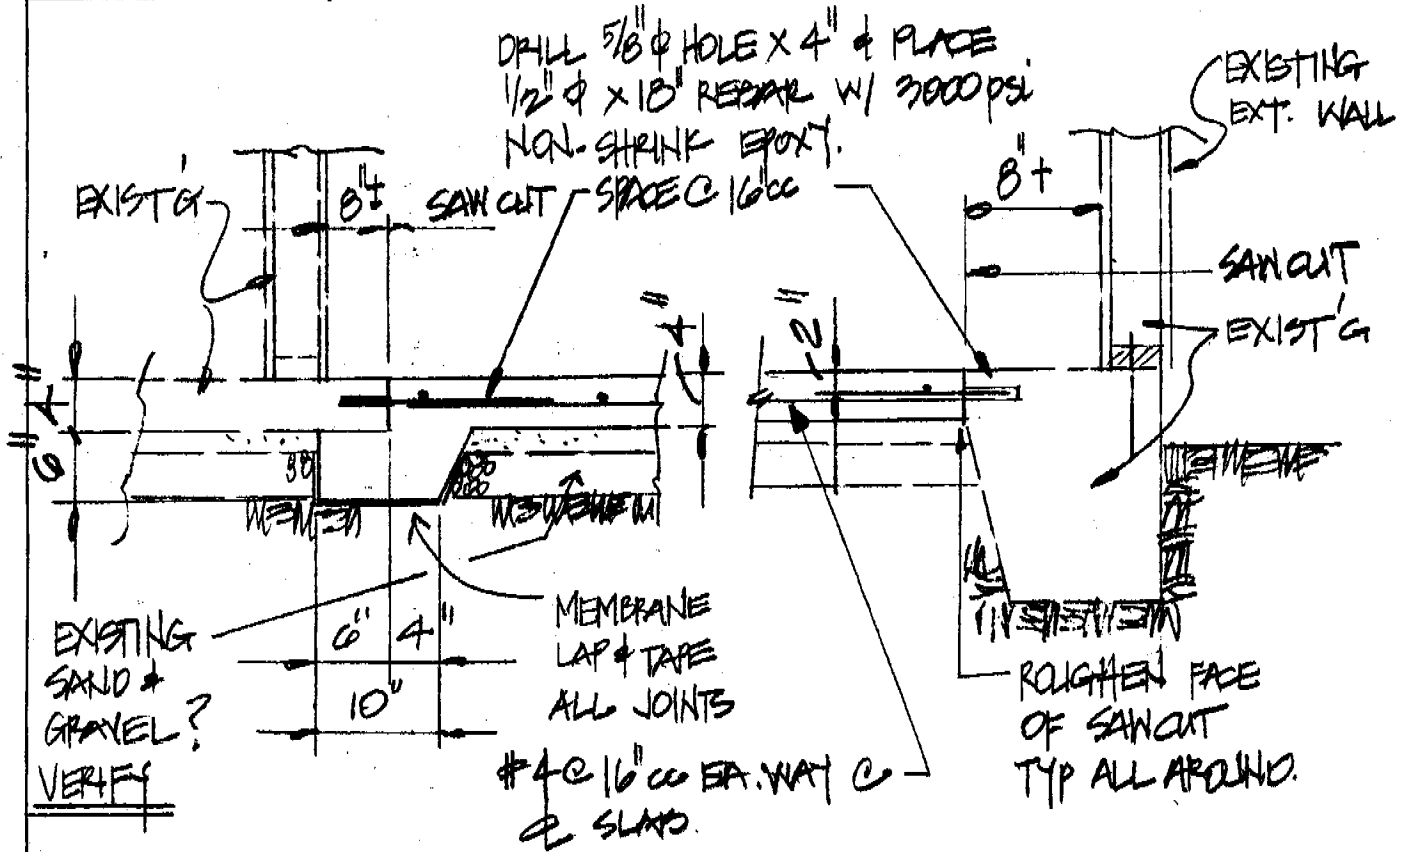 DRILL 5/8" ϕ HOLE X 4" & PLACE
1/2" ϕ X 18" REBAR W/ 3000 psi
NON-SHRINK EPOXY.
SPACE @ 16"cc
EXISTING
EXT. WALL
EXIST'G
8"±
SAW CUT
8"+
SAW CUT
EXIST'G
4"
6"
4"
2"
EXISTING
SAND &
GRAVEL?
VERIFY
6"
4"
10"
MEMBRANE
LAP & TAPE
ALL JOINTS
#4 @ 16"cc EA. WAY @
℄ SLAB.
ROUGHEN FACE
OF SAWCUT
TYP ALL AROUND.